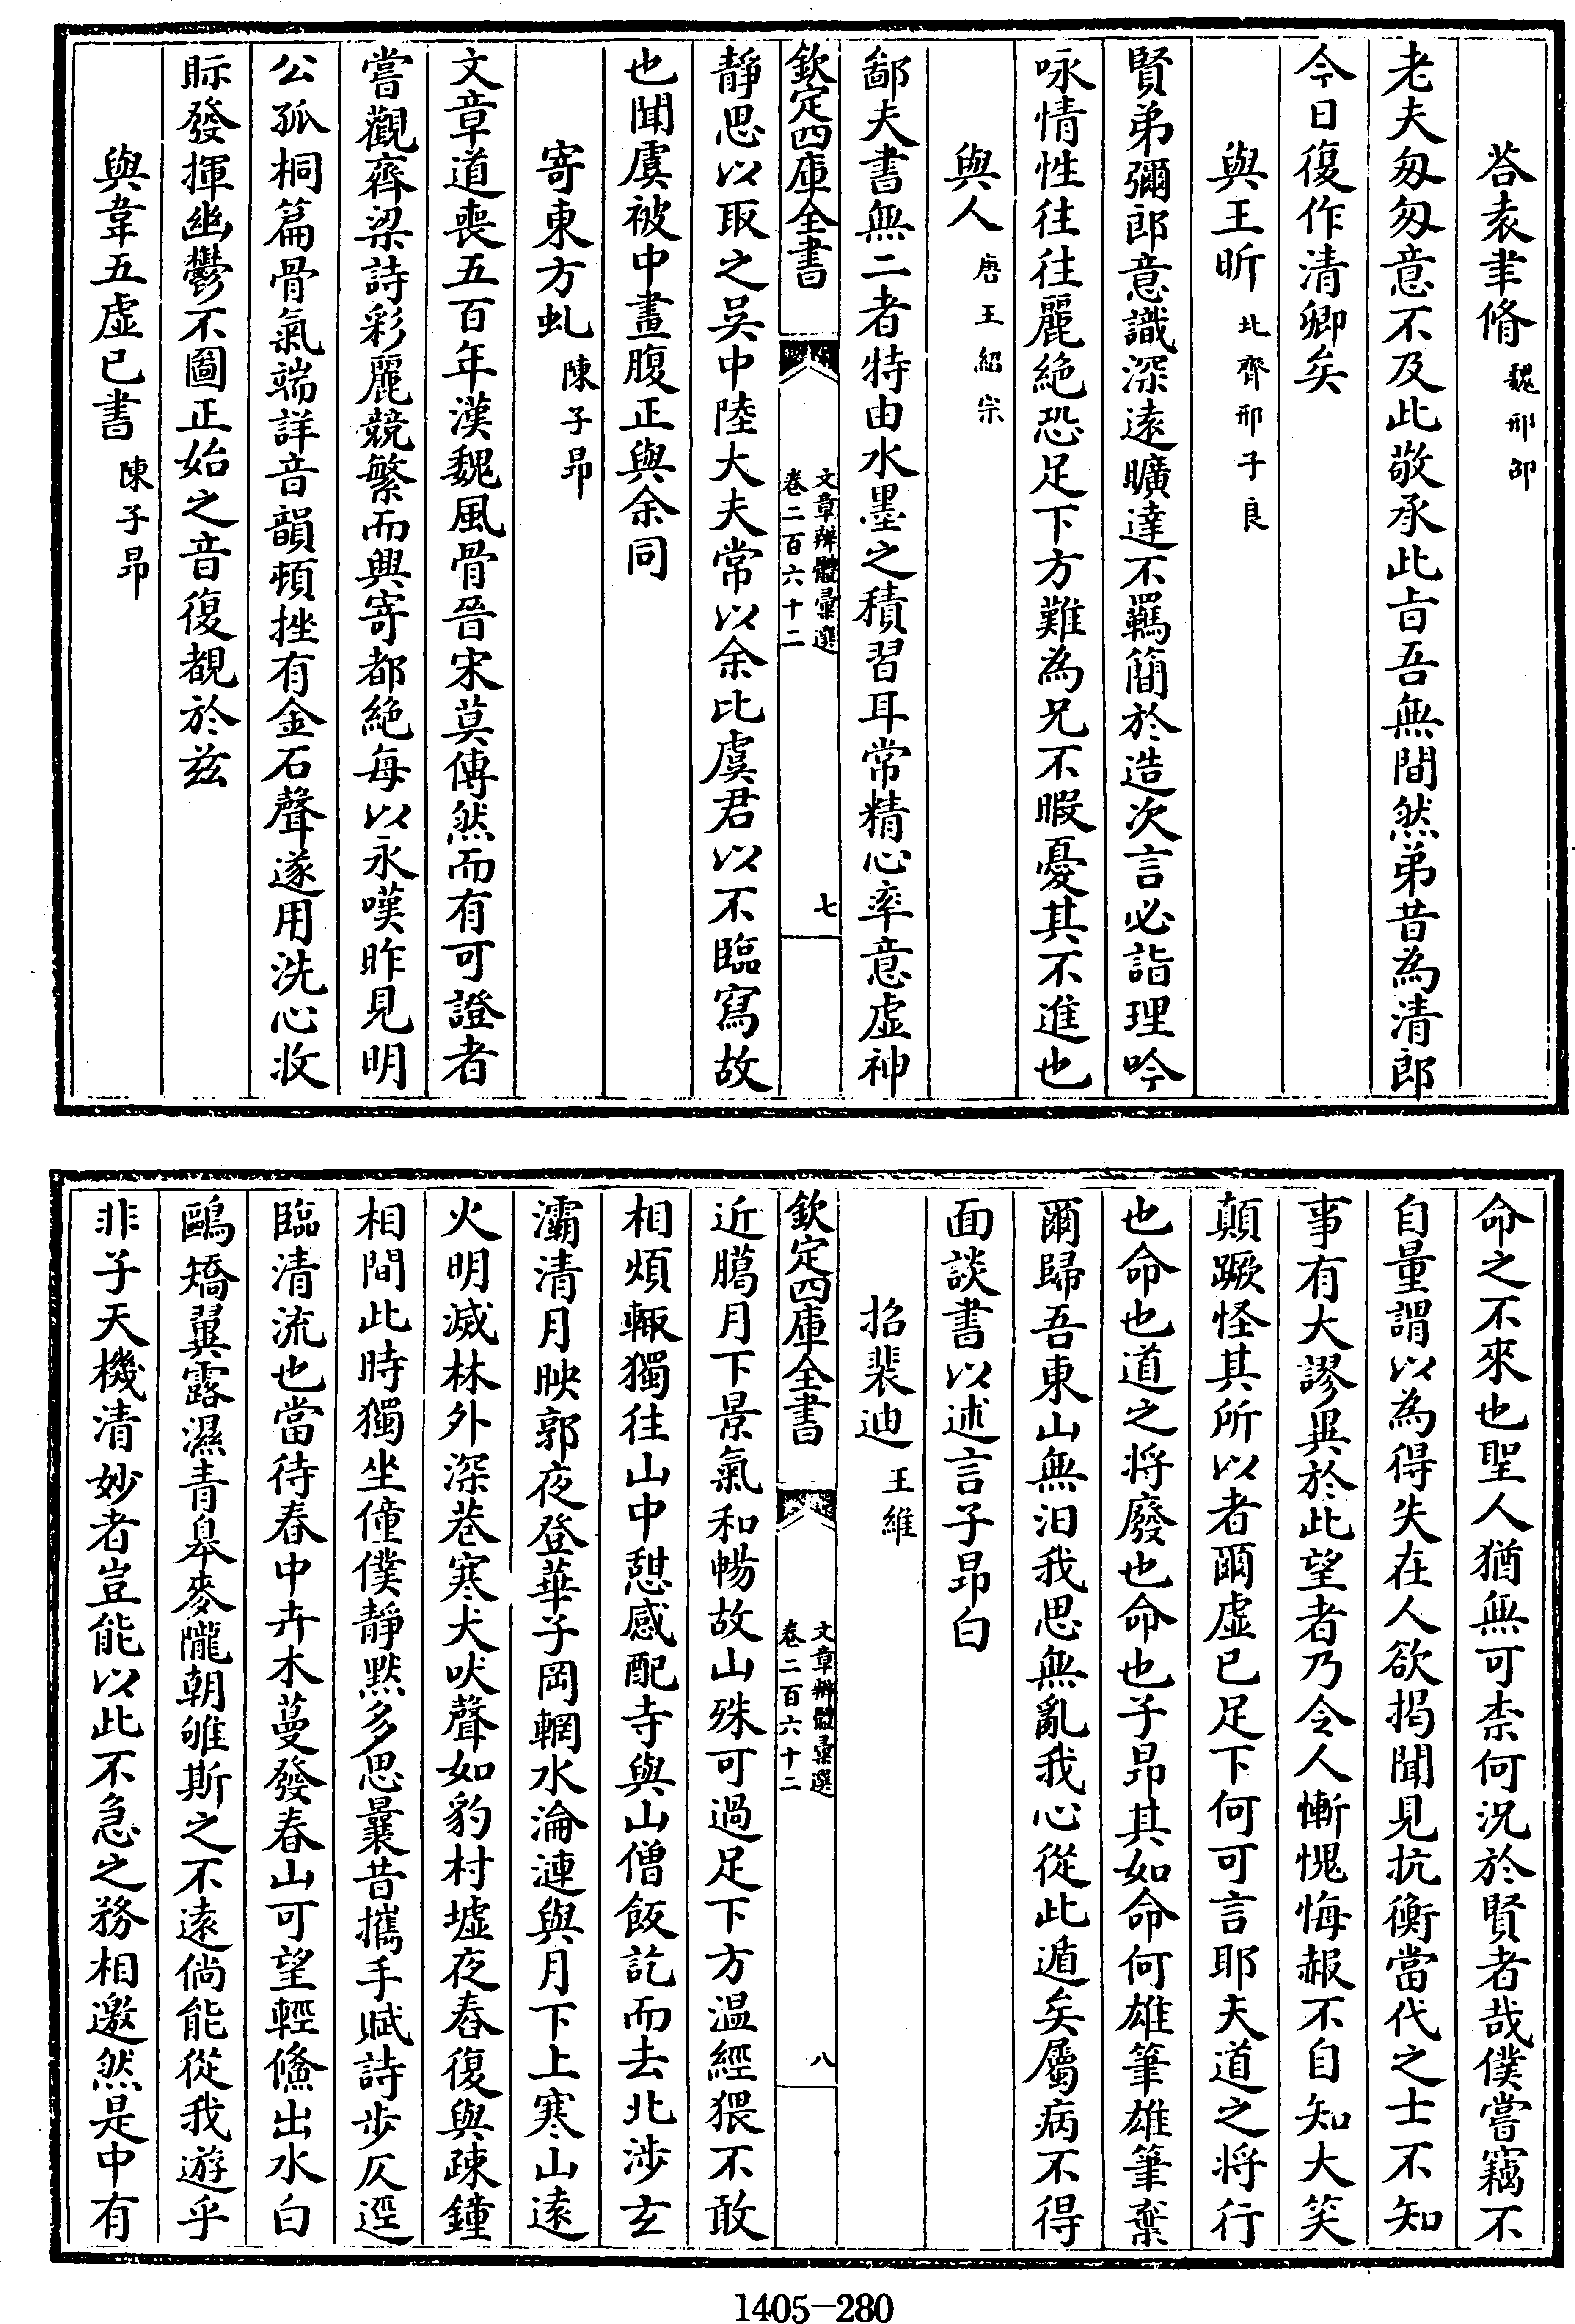 荅袁聿脩 魏邢邵
老夫匆匆意不及此敬承此㫖吾無間然弟昔為清郎
今日復作清卿矣
與王昕 北齊邢子良
賢弟彌郎意識深逺曠達不羈簡於造次言必詣理吟
咏情性往往麗絶恐足下方難為兄不暇憂其不進也
與人 唐王紹宗
鄙夫書無二者特由水墨之積習耳常精心率意虚神
欽定四庫全書 文章辨體彙選 卷二百六十二 七
靜思以取之吳中陸大夫常以余比虞君以不臨寫故
也聞虞被中畫腹正與余同
寄東方虬 陳子昂
文章道喪五百年漢魏風骨晉宋莫傳然而有可證者
嘗觀齊梁詩彩麗競繁而興寄都絶每以永嘆昨見明
公孤桐篇骨氣端詳音韻頓挫有金石聲遂用洗心收
眎發揮幽鬱不圖正始之音復覩於兹
與韋五虚已書 陳子昂
命之不來也聖人猶無可柰何況於賢者哉僕嘗竊不
自量謂以為得失在人欲揭聞見抗衡當代之士不知
事有大謬異於此望者乃令人慚愧悔赧不自知大笑
顛蹶怪其所以者爾虚已足下何可言耶夫道之將行
也命也道之將廢也命也子昂其如命何雄筆雄筆棄
爾歸吾東山無汨我思無亂我心從此遁矣屬病不得
面談書以述言子昂白
招裴迪 王維
欽定四庫全書 文章辨體彙選 卷二百六十二 八
近臈月下景氣和暢故山殊可過足下方温經猥不敢
相煩輙獨往山中憇感配寺與山僧飯訖而去北渉玄
灞清月映郭夜登華子岡輞水淪漣與月下上寒山逺
火明滅林外深巷寒犬吠聲如豹村墟夜舂復與疎鐘
相間此時獨坐僮僕靜黙多思曩昔攜手賦詩步仄逕
臨清流也當待春中卉木蔓發春山可望輕鯈出水白
鷗矯翼露濕青皋麥隴朝雊斯之不逺倘能從我遊乎
非子天機清妙者豈能以此不急之務相邀然是中有
1405-280